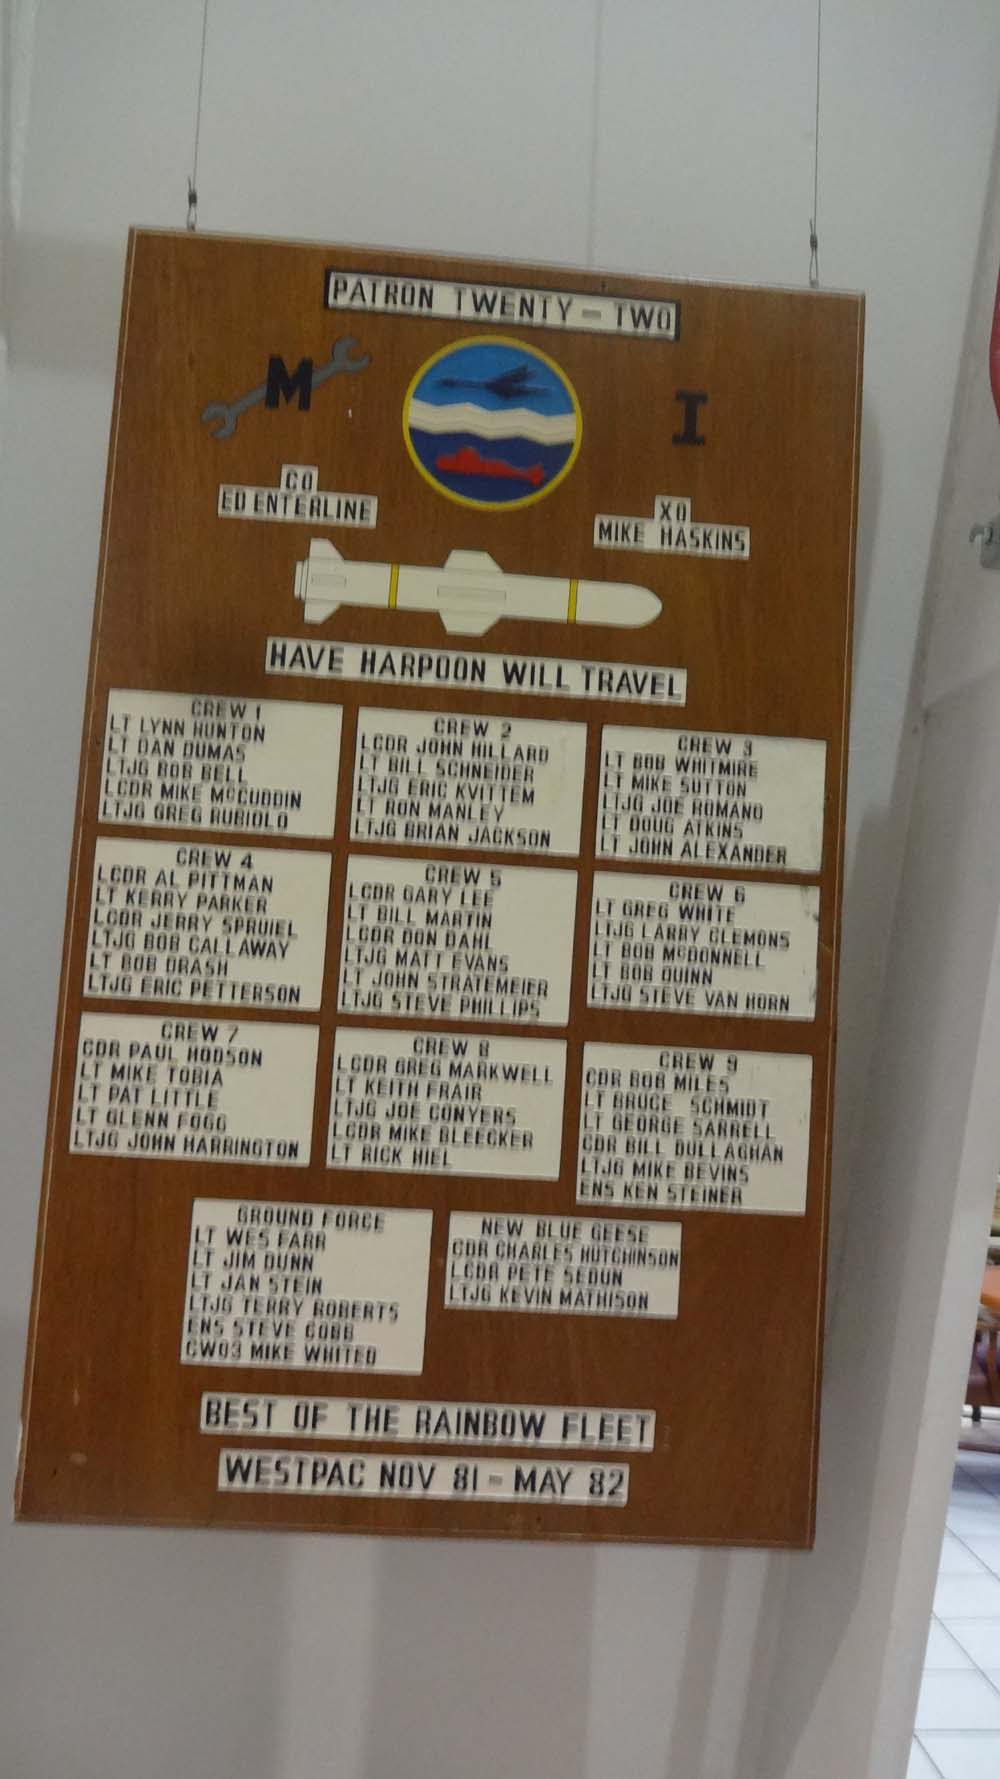 PATRON TWENTY-TWO
M
I
CO
ED ENTERLINE
XO
MIKE HASKINS
HAVE HARPOON WILL TRAVEL
CREW 1
LT LYNN HUNTON
LT DAN DUMAS
LTJG BOB BELL
LCDR MIKE McCUDDIN
LTJG GREG RUBIOLO
CREW 2
LCDR JOHN HILLARD
LT BILL SCHNEIDER
LTJG ERIC KVITTEM
LT RON MANLEY
LTJG BRIAN JACKSON
CREW 3
LT BOB WHITMIRE
LT MIKE SUTTON
LTJG JOE ROMANO
LT DOUG ATKINS
LT JOHN ALEXANDER
CREW 4
LCDR AL PITTMAN
LT KERRY PARKER
LCDR JERRY SPRUIEL
LTJG BOB CALLAWAY
LT BOB DRASH
LTJG ERIC PETTERSON
CREW 5
LCDR GARY LEE
LT BILL MARTIN
LCDR DON DAHL
LTJG MATT EVANS
LT JOHN STRATEMEIER
LTJG STEVE PHILLIPS
CREW 6
LT GREG WHITE
LTJG LARRY CLEMONS
LT BOB McDONNELL
LT BOB QUINN
LTJG STEVE VAN HORN
CREW 7
CDR PAUL HODSON
LT MIKE TOBIA
LT PAT LITTLE
LT GLENN FOGG
LTJG JOHN HARRINGTON
CREW 8
LCDR GREG MARKWELL
LT KEITH FRAIR
LTJG JOE CONYERS
LCDR MIKE BLEECKER
LT RICK HIEL
CREW 9
CDR BOB MILES
LT BRUCE SCHMIDT
LT GEORGE SARRELL
CDR BILL DULLAGHAN
LTJG MIKE BEVINS
ENS KEN STEINER
GROUND FORCE
LT WES FARR
LT JIM DUNN
LT JAN STEIN
LTJG TERRY ROBERTS
ENS STEVE COBB
CWO3 MIKE WHITED
NEW BLUE GEESE
CDR CHARLES HUTCHINSON
LCDR PETE SEDUN
LTJG KEVIN MATHISON
BEST OF THE RAINBOW FLEET
WESTPAC NOV 81-MAY 82